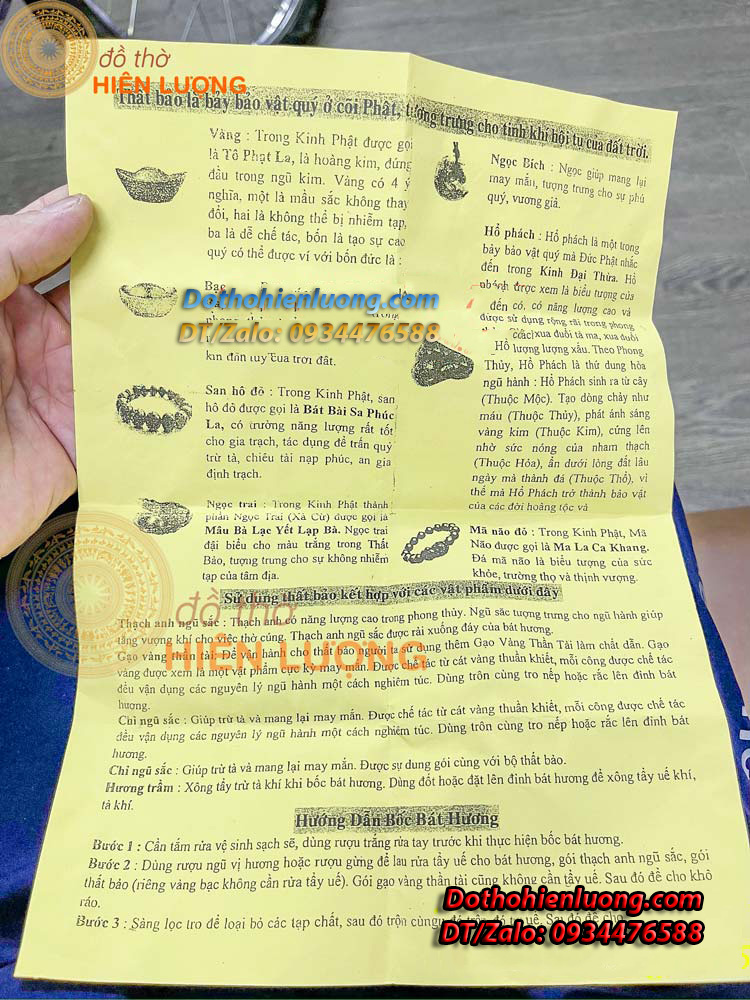 đồ thờ
HIÊN LƯỢNG
Thất bảo là bảy bảo vật quý ở cõi Phật, tượng trưng cho tinh khí hội tụ của đất trời.
Vàng : Trong Kinh Phật được gọi
là Tô Phạt La, là hoàng kim, đứng
đầu trong ngũ kim. Vàng có 4 ý
nghĩa, một là mầu sắc không thay
đổi, hai là không thể bị nhiễm tạp,
ba là dễ chế tác, bốn là tạo sự cao
quý có thể được ví với bốn đức là :
Bạc
kim đan tụy của trời đất.
San hô đỏ : Trong Kinh Phật, san
hô đỏ được gọi là Bát Bài Sa Phúc
La, có trường năng lượng rất tốt
cho gia trạch, tác dụng để trấn quỷ
trừ tà, chiêu tài nạp phúc, an gia
định trạch.
Ngọc trai : Trong Kinh Phật thành
phần Ngọc Trai (Xà Cừ) được gọi là
Mâu Bà Lạc Yết Lạp Bà. Ngọc trai
đại biểu cho màu trắng trong Thất
Bảo, tượng trưng cho sự không nhiễm
tạp của tâm địa.
Ngọc Bích : Ngọc giúp mang lại
may mắn, tượng trưng cho sự phú
quý, vương giả.
Hổ phách : Hổ phách là một trong
bảy bảo vật quý mà Đức Phật nhắc
đến trong Kinh Đại Thừa. Hổ
phách được xem là biểu tượng của
đến có. có năng lượng cao và
được sử dụng rộng rãi trong phong
(các) xua đuổi tà ma, xua đuổi
Hổ lượng lượng xấu. Theo Phong
Thủy, Hổ Phách là thứ dung hòa
ngũ hành : Hổ Phách sinh ra từ cây
(Thuộc Mộc). Tạo dòng chảy như
máu (Thuộc Thủy), phát ánh sáng
vàng kim (Thuộc Kim), cứng lên
nhờ sức nóng của nham thạch
(Thuộc Hỏa), ẩn dưới lòng đất lâu
ngày mà thành đá (Thuộc Thổ), vì
thế mà Hổ Phách trở thành bảo vật
của các đời hoàng tộc và
Mã não đỏ : Trong Kinh Phật, Mã
Não được gọi là Ma La Ca Khang.
Đá mã não là biểu tượng của sức
khỏe, trường thọ và thịnh vượng.
Dothohienluong.com
DT/Zalo: 0934476588
Sử dụng thất bảo kết hợp với các vật phẩm dưới đây
Thạch anh ngũ sắc : Thạch anh có năng lượng cao trong phong thủy. Ngũ sắc tượng trưng cho ngũ hành giúp
tăng vượng khí cho việc thờ cúng. Thạch anh ngũ sắc được rải xuống đáy của bát hương.
Gạo vàng thần tài: Để vận hành cho thất bảo người ta dùng thêm Gạo Vàng Thần Tài làm chất dẫn. Gạo
vàng được xem là một vật phẩm cực kỳ may mắn. Được chế tác từ cát vàng thuần khiết, mỗi công được chế tác
đều vận dụng các nguyên lý ngũ hành một cách nghiêm túc. Dùng trôn cùng tro nếp hoặc rắc lên đỉnh bát
hương.
Chỉ ngũ sắc : Giúp trừ tà và mang lại may mắn. Được chế tác từ cát vàng thuần khiết, mỗi công được chế tác
đều vận dụng các nguyên lý ngũ hành một cách nghiêm túc. Dùng trôn cùng tro nếp hoặc rắc lên đỉnh bát
hương.
Chỉ ngũ sắc : Giúp trừ tà và mang lại may mắn. Được sự dung gói cùng với bộ thất bảo.
Hương trầm : Xông tẩy trừ tà khí khi bốc bát hương. Dùng đốt hoặc đặt lên đỉnh bát hương để xông tẩy uế khí,
tà khí.
đồ thờ
HIÊN LƯỢNG
Hướng Dẫn Bốc Bát Hương
Bước 1 : Cần tắm rửa vệ sinh sạch sẽ, dùng rượu trắng rửa tay trước khi thực hiện bốc bát hương.
Bước 2 : Dùng rượu ngũ vị hương hoặc rượu gừng để lau rửa tẩy uế cho bát hương, gói thạch anh ngũ sắc, gói
thất bảo (riêng vàng bạc không cần rửa tẩy uế). Gói gạo vàng thần tài cũng không cần tẩy uế. Sau đó để cho khô
ráo.
Bước 3 : Sàng lọc tro để loại bỏ các tạp chất, sau đó trộn cùng
Dothohienluong.com
DT/Zalo: 0934476588